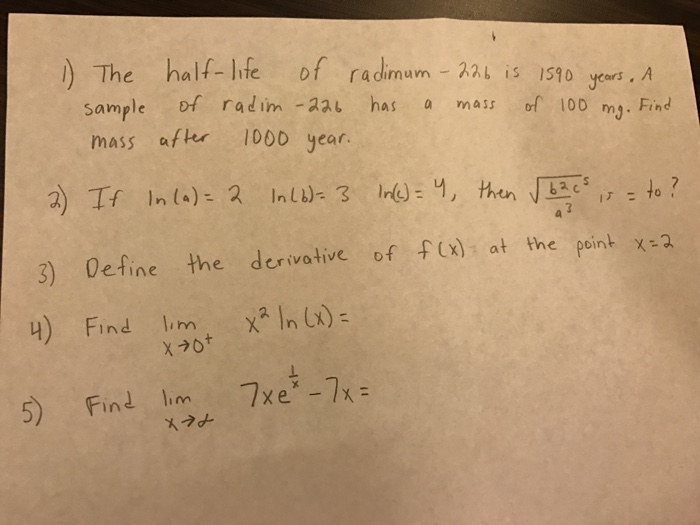 1) The half-life of radimum - 226 is 1590 years. A
sample of radim - 226 has a mass of 100 mg. Find
mass after 1000 year.
2) If ln(a) = 2 ln(b) = 3 ln(c) = 4, then √(b²c⁵/a³) is = to?
3) Define the derivative of f(x) at the point x=2
4) Find lim x→0⁺ x² ln(x) =
5) Find lim x→∞ 7xe^(1/x) - 7x =